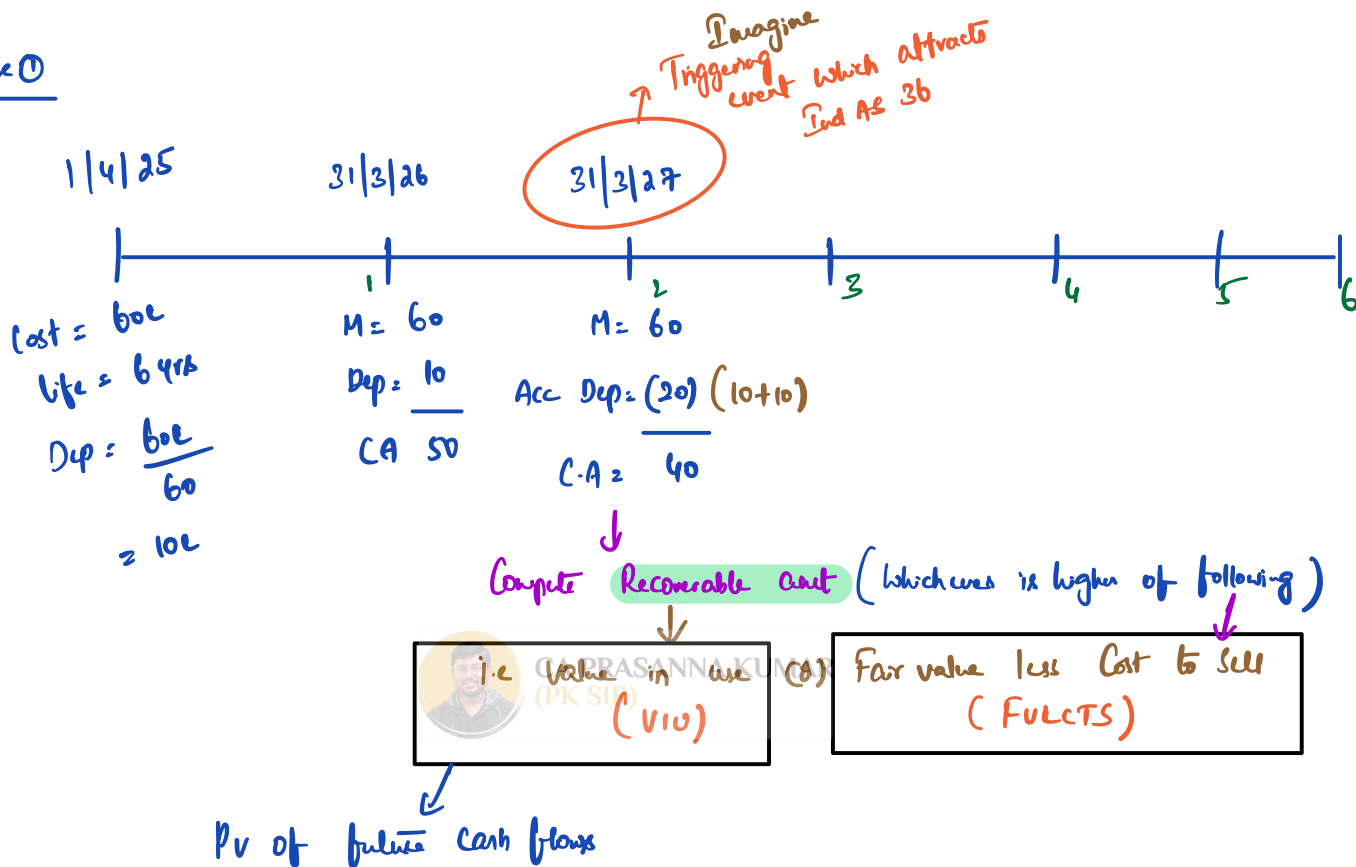 e ①
Imagine
Triggering
event which attracts
Ind AS 36
1|4|25
31|3|26
31|3|27
1
2
3
4
5
6
Cost = 60L
life = 6 yrs
Dep = 60L
60
= 10L
M = 60
Dep = 10
CA 50
M = 60
Acc Dep = (20) (10+10)
C.A = 40
Compute Recoverable amt (whichever is higher of following)
i.e value in use (or)
(VIU)
Fair value less Cost to Sell
(FVLCTS)
CA PRASANNA KUMAR
(PK SIR)
PV of future cash flows